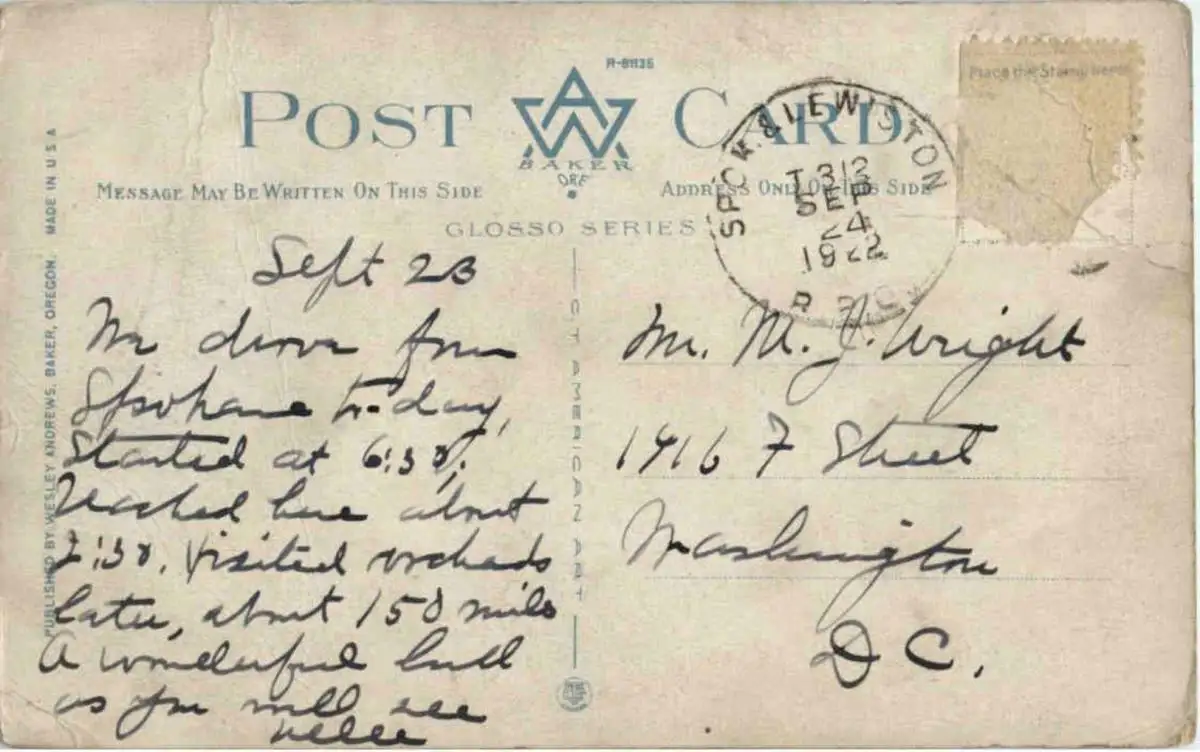 R-81135
POST CARD
AWA
BAKER
ORE
MESSAGE MAY BE WRITTEN ON THIS SIDE
ADDRESS ONLY ON THIS SIDE
GLOSSO SERIES
Place the Stamp here
SPOK. & LEWISTON
T. 312
SEP
24
1922
R.P.O.
PUBLISHED BY WESLEY ANDREWS, BAKER, OREGON. MADE IN U.S.A
OCTAMERICAN ART
Sept 23
We drove from
Spokane to-day,
Started at 6:30;
Reached here about
2:30. Visited orchards
later, about 150 miles
A wonderful
as you will see
Mr. M. J. Wright
1916 F Street
Washington
D C.